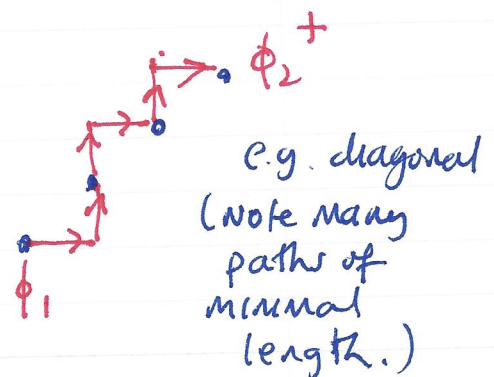 ϕ₂⁺
e.g. diagonal
(Note Many
paths of
minimal
length.)
ϕ₁